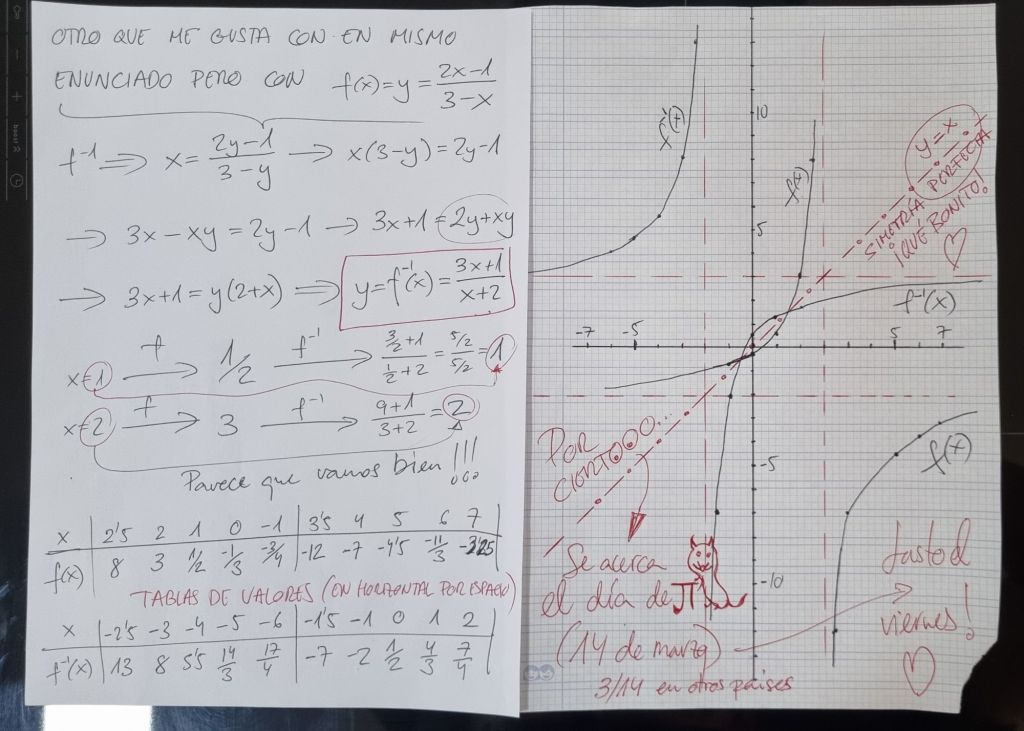 OTRO QUE ME GUSTA CON EN MISMO
ENUNCIADO PERO CON f(x)=y=(2x-1)/(3-x)
f⁻¹ ⟹ x=(2y-1)/(3-y) → x(3-y)=2y-1
→ 3x-xy=2y-1 → 3x+1=2y+xy
→ 3x+1=y(2+x) ⟹ y=f⁻¹(x)=(3x+1)/(x+2)
x=1 —f→ 1/2 —f⁻¹→ (3/2+1)/(1/2+2)=(5/2)/(5/2)=1
x=2 —f→ 3 —f⁻¹→ (9+1)/(3+2)=2
Parece que vamos bien!!!
x | 2'5 2 1 0 -1 | 3'5 4 5 6 7
f(x) | 8 3 1/2 -1/3 -3/4 | -12 -7 -4'5 -11/3 -3'25
TABLAS DE VALORES (EN HORIZONTAL POR ESPACIO)
x | -2'5 -3 -4 -5 -6 | -1'5 -1 0 1 2
f⁻¹(x) | 13 8 5'5 14/3 17/4 | -7 -2 1/2 4/3 7/4
f⁻¹(x)
10
f(x)
y=x
SIMETRÍA PERFECTA
¡QUÉ BONITO!
5
f⁻¹(x)
-7 -5 5 7
-5
f(x)
-10
POR
CIERTOOO...
Se acerca
el día de π
(14 de marzo)
3/14 en otros países
Justo el
viernes!